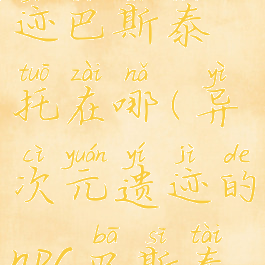 迹巴斯泰
tuō zài nǎ yì
托在哪(异
cì yuán yí jì de
次元遗迹的
bā sī tài
npc巴斯泰